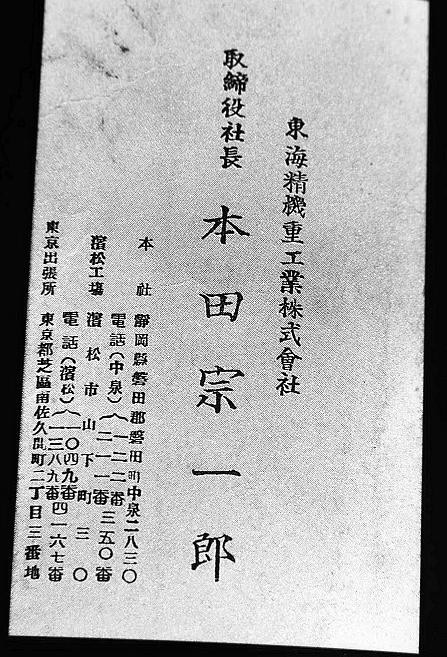 東海精機重工業株式會社
取締役社長
本田宗一郎
本社 靜岡縣磐田郡磐田町中泉二八三〇
電話(中泉)(一二二番 二一一番 三五〇番
濱松工場 濱松市山下町三〇
電話(濱松)(一〇四九番 一三八九番 四一六七番
東京出張所 東京都芝區南佐久間町二丁目三番地